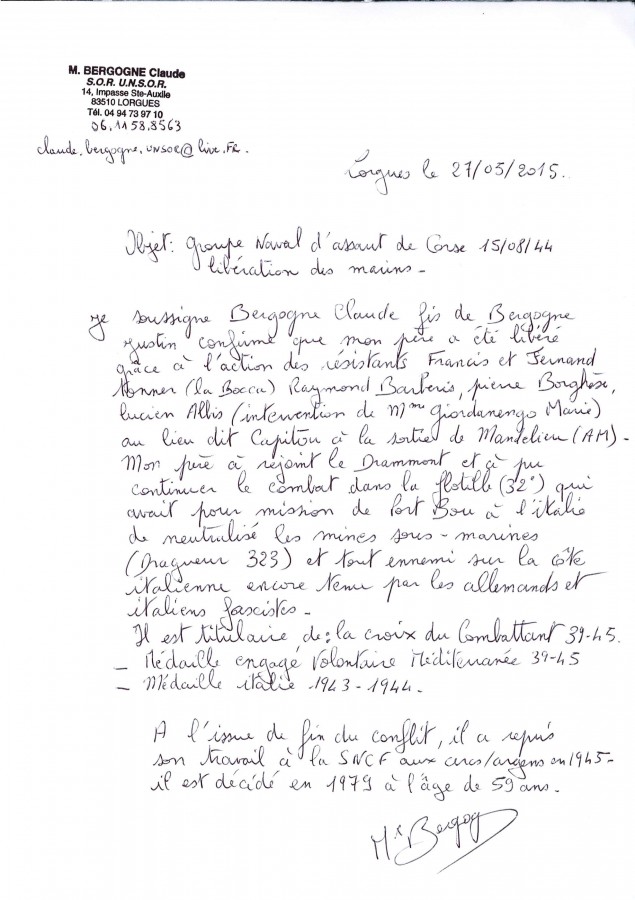 M. BERGOGNE Claude
S.O.R. U.N.S.O.R.
14, Impasse Ste-Auxile
83510 LORGUES
Tél. 04 94 73 97 10
06.11 58.8563
claude.bergogne.UNSOR@live.FR.
Lorgues le 27/05/2015.
Objet: Groupe Naval d'assaut de Corse 15/08/44
libération des marins -
je soussigne Bergogne Claude fis de Bergogne
Justin confirme que mon père a été libéré
grâce à l'action des résistants Francis et Fernand
Tonner (la Bocca) Raymond Barberis, pierre Borghèse,
Lucien Albis (intervention de Mme Giordanengo Marie)
au lieu dit Capitou à la sortie de Mandelieu (AM) -
Mon père à rejoint le Drammont et à pu
continuer le combat dans la flotille (32°) qui
avait pour mission de Port Bou à l'italie
de neutralisé les mines sous-marines
(Dragueur 323) et tout ennemi sur la côte
italienne encore tenu par les allemands et
italiens fascistes -
Il est titulaire de: la croix du Combattant 39-45.
- Médaille engagé Volontaire Méditerranée 39-45
- Médaille italie 1943-1944.
A l'issue de fin du conflit, il a repris
son travail à la SNCF aux arcs/argens en 1945-
il est décidé en 1979 à l'âge de 59 ans.
Mr Bergog